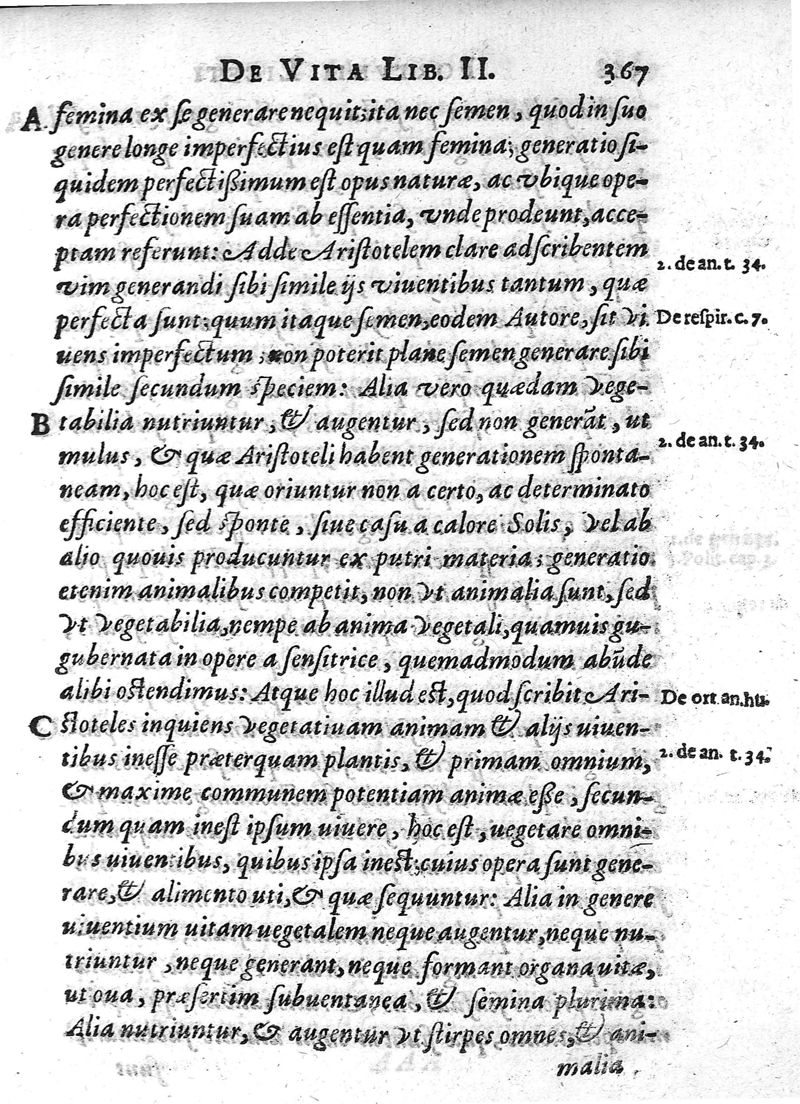 DE VITA LIB. II. 367
A femina ex se generare nequit; ita nec semen, quod in suo
genere longe imperfectius est quam femina; generatio si-
quidem perfectißimum est opus naturæ, ac vbique ope-
ra perfectionem suam ab essentia, vnde prodeunt, acce-
ptam referunt: Adde Aristotelem clare adscribentem
2. de an. t. 34.
vim generandi sibi simile ijs viuentibus tantum, quæ
perfecta sunt; quum itaque semen, eodem Autore, sit vi
De respir. c. 7.
uens imperfectum; non poterit plane semen generare sibi
simile secundum speciem: Alia vero quædam vege-
B tabilia nutriuntur, & augentur, sed non generāt, ut
2. de an. t. 34.
mulus, & quæ Aristoteli habent generationem sponta-
neam, hoc est, quæ oriuntur non a certo, ac determinato
efficiente, sed sponte, siue casu a calore Solis, vel ab
alio quouis producuntur ex putri materia; generatio
etenim animalibus competit, non vt animalia sunt, sed
vt vegetabilia, nempe ab anima vegetali, quamuis gu-
gubernata in opere a sensitrice, quemadmodum abūde
alibi ostendimus: Atque hoc illud est, quod scribit Ari-
De ort. an. hu.
C stoteles inquiens vegetatiuam animam & alijs uiuen-
tibus inesse præterquam plantis, & primam omnium,
2. de an. t. 34.
& maxime communem potentiam animæ eße, secun-
dum quam inest ipsum uiuere, hoc est, uegetare omni-
bus uiuentibus, quibus ipsa inest; cuius opera sunt gene-
rare, & alimento uti, & quæ sequuntur: Alia in genere
uiuentium uitam uegetalem neque augentur, neque nu-
triuntur, neque generant, neque formant organa uitæ,
ut oua, præsertim subuentanea, & semina plurima:
Alia nutriuntur, & augentur vt stirpes omnes, & ani-
malia